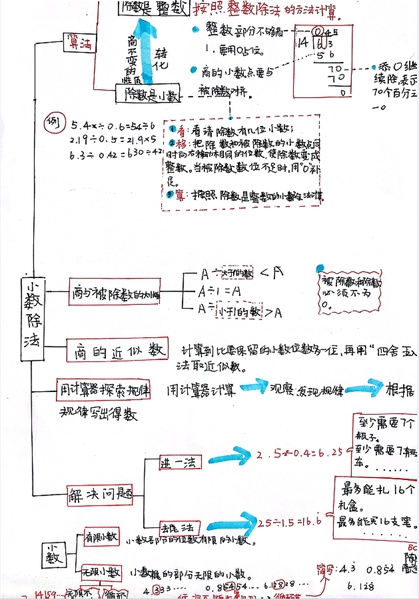 除数是整数 按照整数除法的方法计算。
算法
商不变的性质
转化
整数部分不够商
1，要用0占位。
商的小数点要与
被除数对齐。
0.45
14 6.3
56
70
70
0
添0继
续除，表示
70个百分之
一。
除数是小数
例
5.4÷0.6=54÷6
2.19÷0.5=21.9÷5
6.3÷0.42=630÷42
①看：看清除数有几位小数；
②移：把除数和被除数的小数点同
时向右移动相同的位数，使除数变成
整数。当被除数数位不足时，用"0"补
足。
③算：按照除数是整数的小数除法计算。
小数除法
商与被除数的大小
A÷大于1的数<A
A÷1=A
A÷小于1的数>A
被除数和除数
必须不为
0。
商的近似数
计算到比要保留的小数位数多一位，再用"四舍五入
法取近似数。
用计算器探索规律
用计算器计算
观察发现规律
根据
规律写出得数
解决问题
进一法
2.5÷0.4=6.25
至少需要7个
瓶子。
至少需要7辆
车。......
去尾法
25÷1.5=16.6
最多能扎16个
礼盒。
最多能买16支笔。
小数
有限小数
小数部分的位数有限的小数。
无限小数
小数的部分无限的小数。
简写：4.3 0.854
6.128